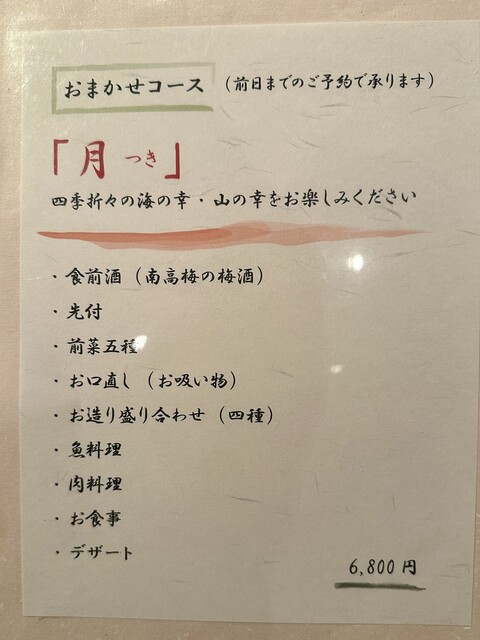 おまかせコース (前日までのご予約で承ります)
「月 つき」
四季折々の海の幸・山の幸をお楽しみください
・食前酒 (南高梅の梅酒)
・先付
・前菜五種
・お口直し (お吸い物)
・お造り盛り合わせ (四種)
・魚料理
・肉料理
・お食事
・デザート
6,800円